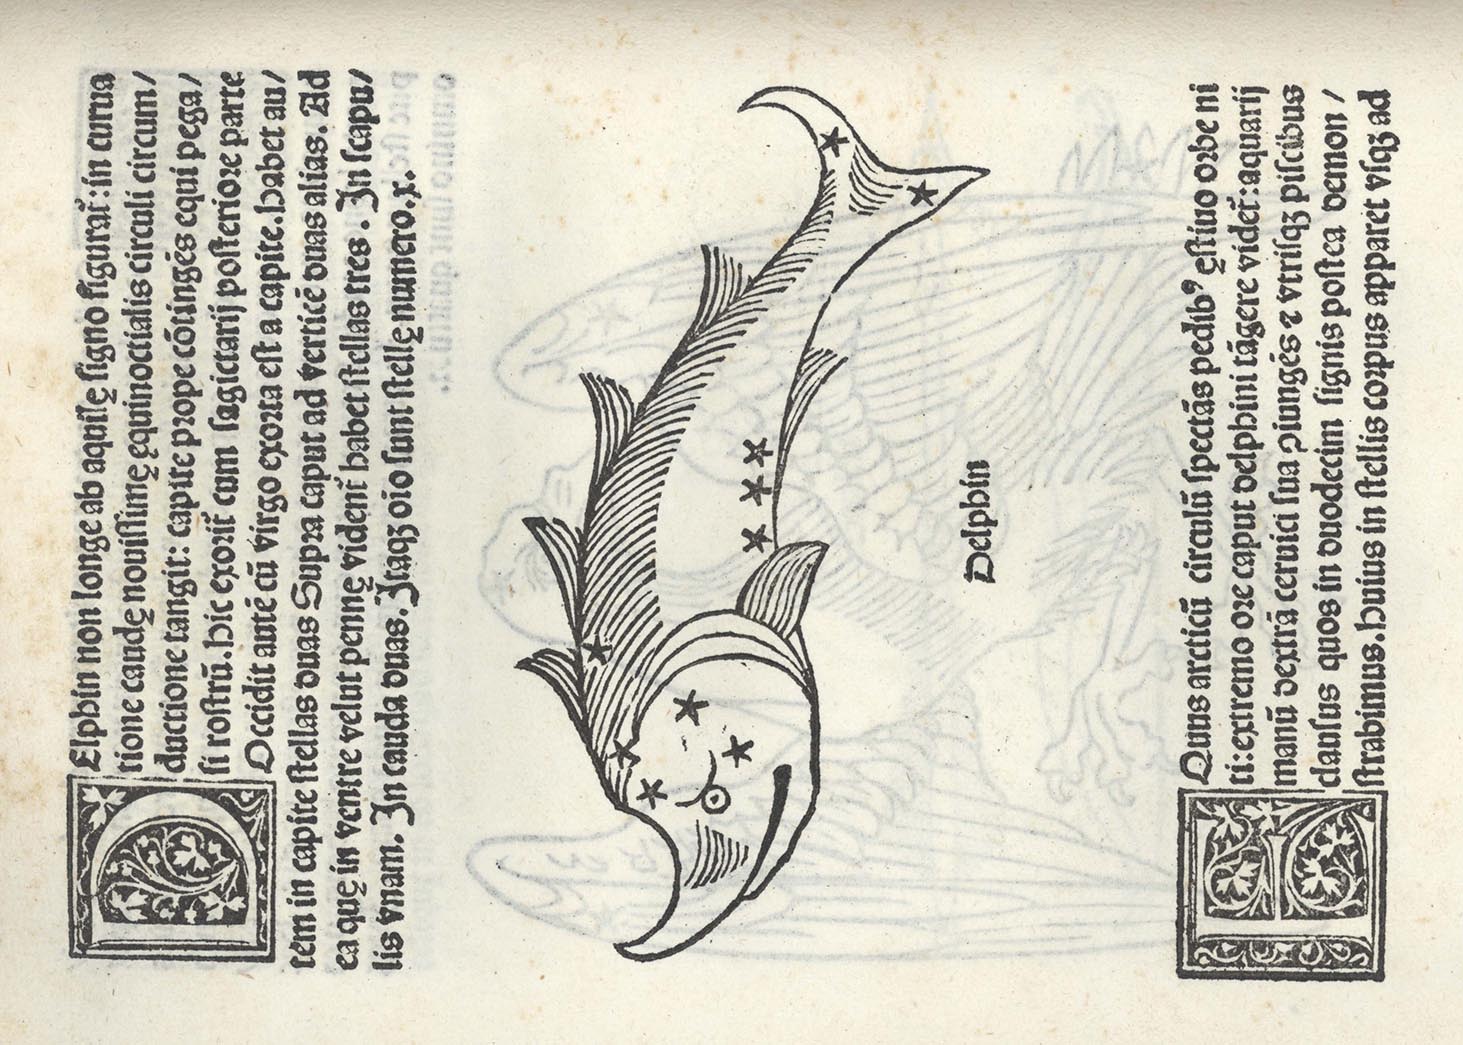 DElphin non longe ab aquilę signo figurat᷑: in curua
tione caudę nouissimę equinoctialis circuli circum/
ductione tangit: capite prope cōtingēs equi pega/
si rostrū. hic exorit᷑ cum sagictarij posteriore parte
Occidit autē cū virgo exorta est a capite. habet au/
tem in capite stellas duas Supra caput ad verticē duas alias. Ad
ea quę in ventre velut pennę vident᷑ habet stellas tres. In scapu/
lis vnam. In cauda duas. Itaqꝫ oīo sunt stellę numero .x.
Delphin
EQuus arcticū circulū spectās pedibꝰ ęstiuo orbe ni
ti: extremo ore caput delphini tāgere videt᷑: aquarij
manū dextrā ceruici sua ꝯiungēs ⁊ vtrisqꝫ piscibus
clausus quos in duodecim signis postea demon/
strabimus. huius in stellis corpus apparet vsqꝫ ad